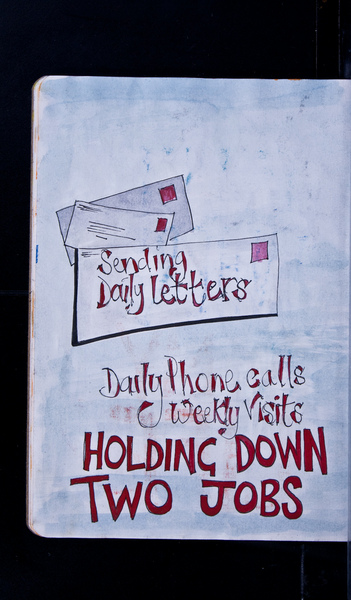 Sending
Daily letters
Daily Phone calls
& Weekly Visits
HOLDING DOWN
TWO JOBS